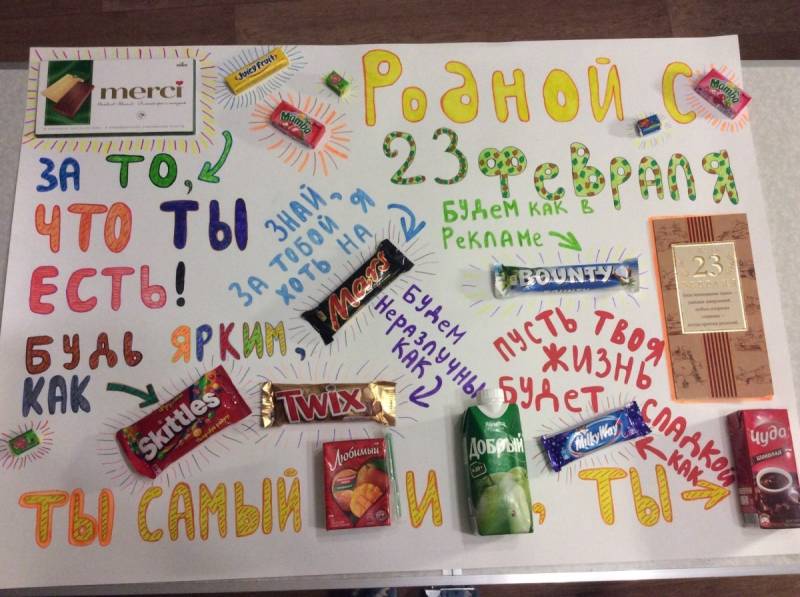 merci
Juicy Fruit
Mamba
Mamba
Родной с
23 февраля
За то,
что ты
есть!
Знай,
за тобой я
хоть на
Mars
Будем как в
рекламе
BOUNTY
23
Будь ярким,
как
Skittles
TWIX
Будем
неразлучны
как
Пусть твоя
жизнь
будет
сладкой
как
MilkyWay
Ты самый
Любимый
и
Добрый
, ты
Чудо
ШОКОЛАД